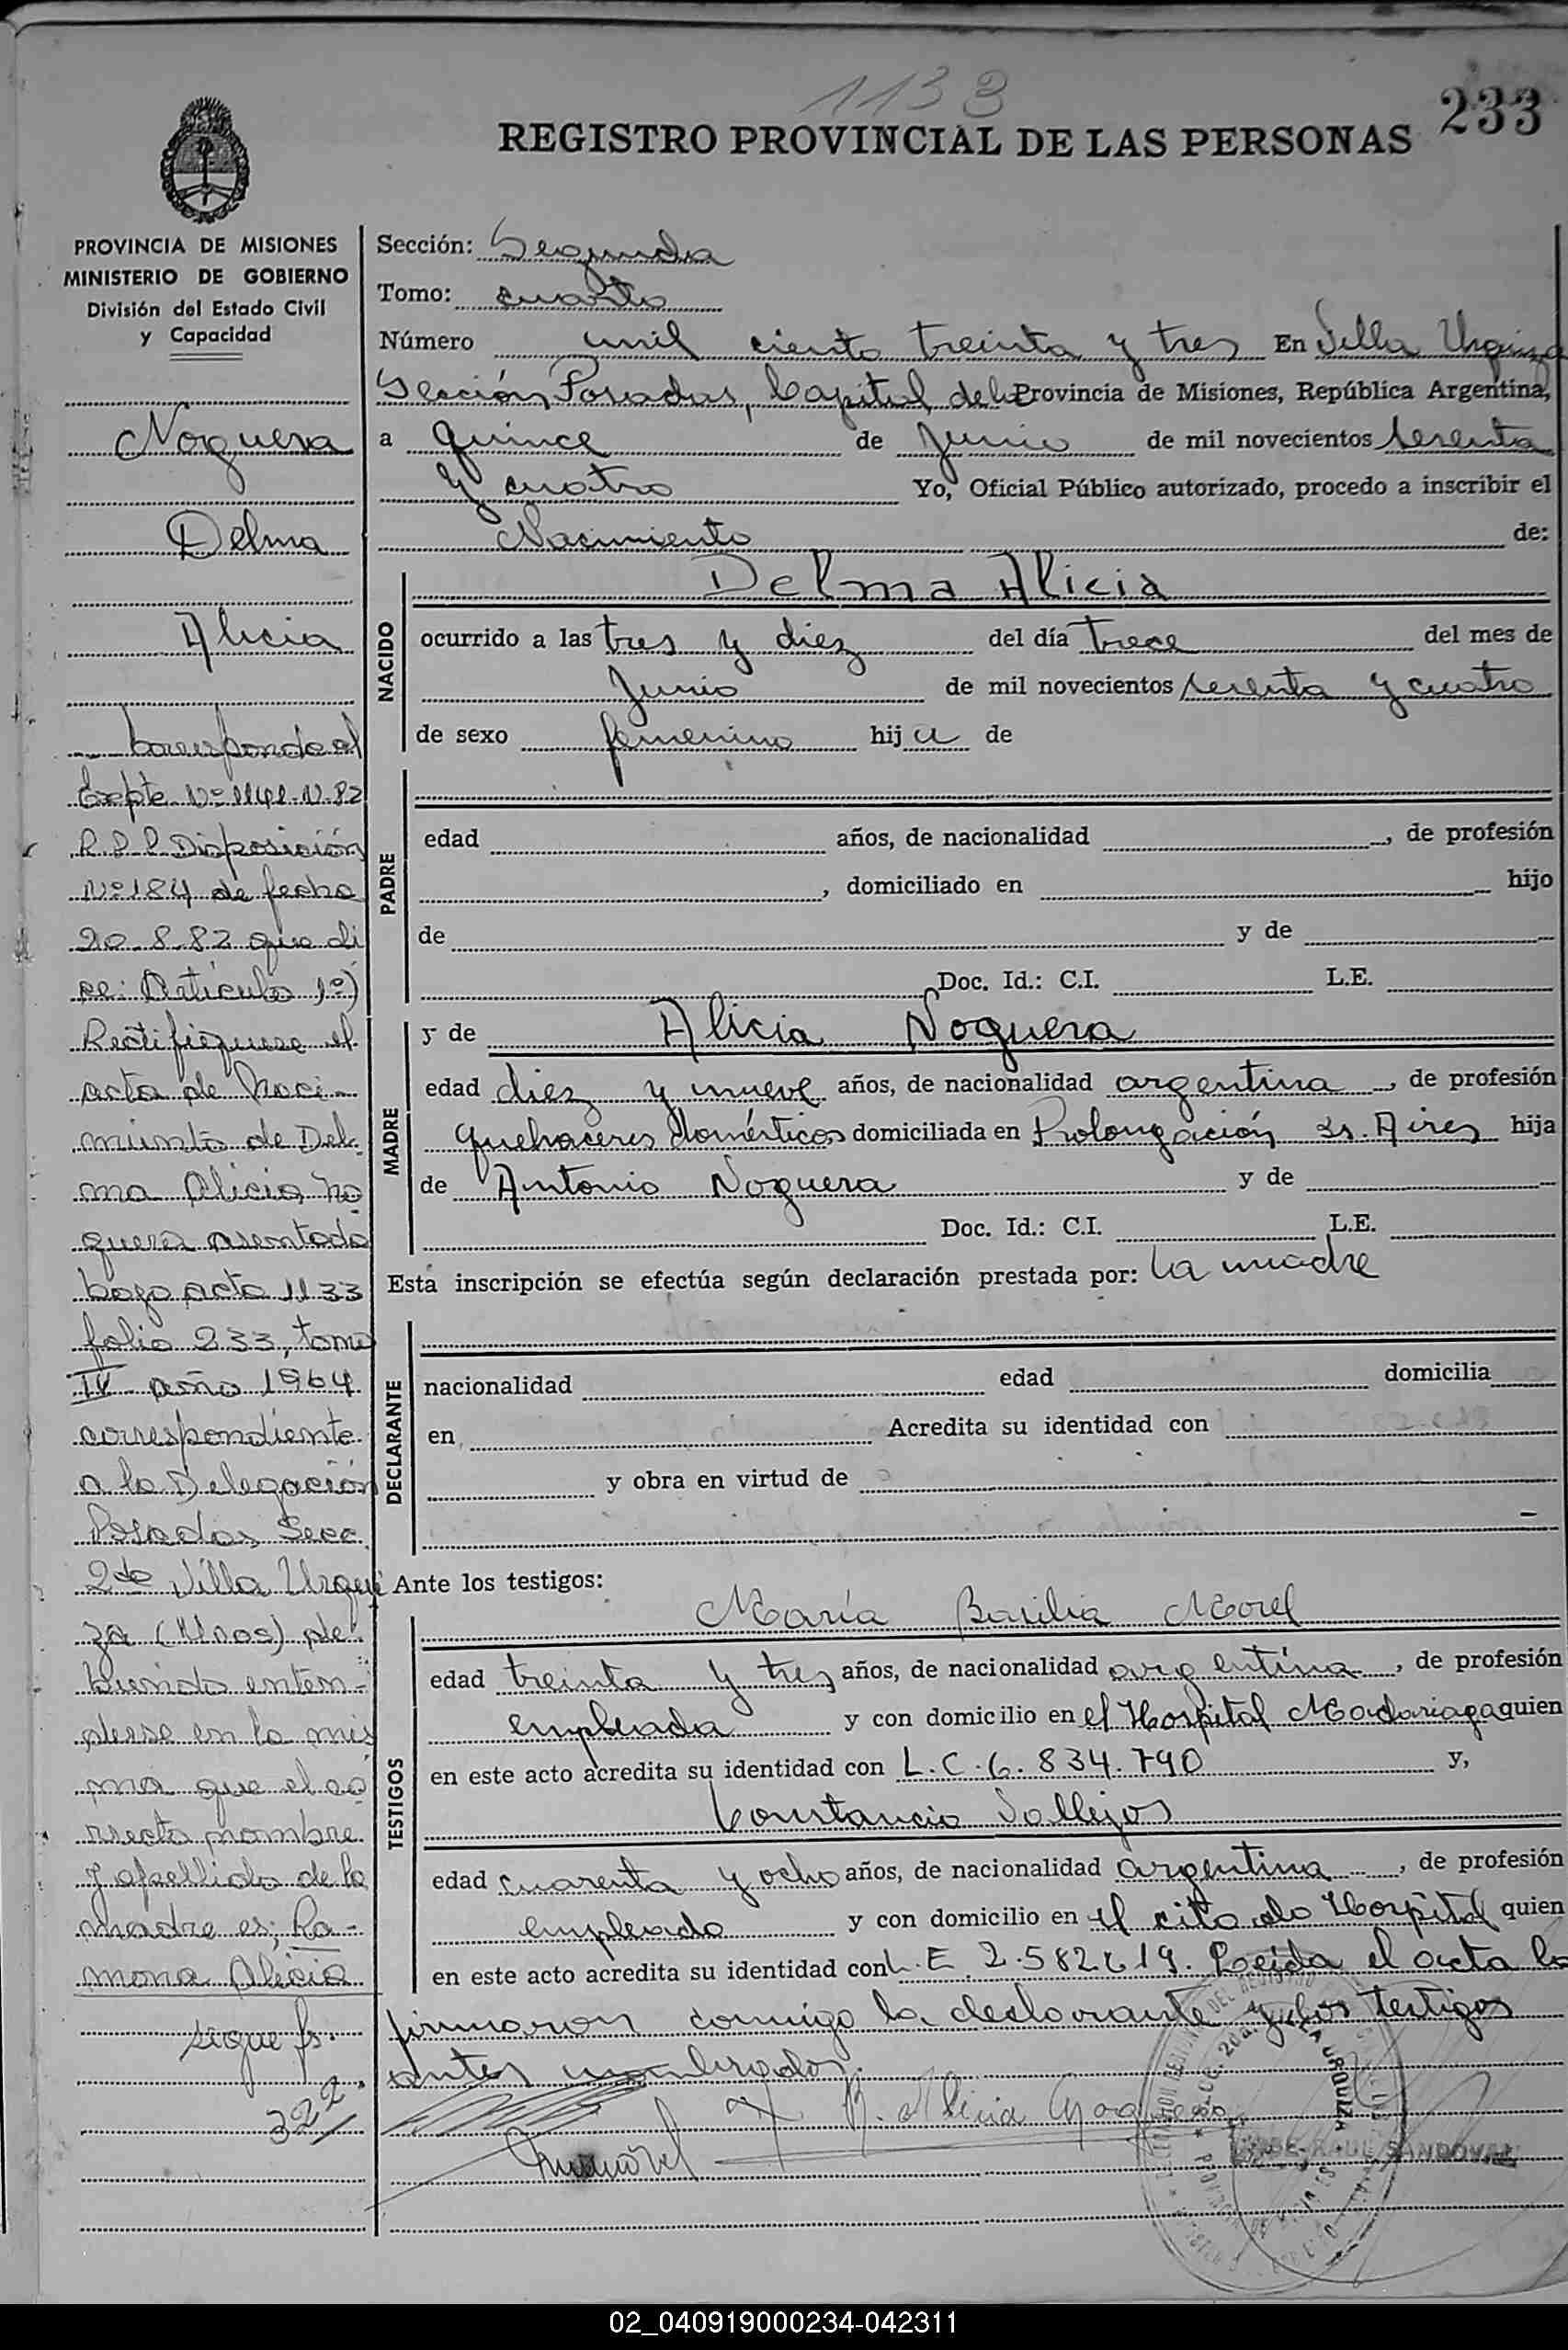 1133
233
REGISTRO PROVINCIAL DE LAS PERSONAS
PROVINCIA DE MISIONES
MINISTERIO DE GOBIERNO
División del Estado Civil
y Capacidad
Noguera
Delma
Alicia
Corresponde al
Expte. Nº 1141-N-82
R.P.P. Disposición
Nº 184 de fecha
20-8-82 que di
ce: Artículo 1º)
Rectifíquese el
acta de Naci-
miento de Del-
ma Alicia No
guera asentada
bajo acta 1133
folio 233, tomo
IV año 1964
correspondiente
a la Delegación
Posadas, Secc.
2da Villa Urqui
za (Mnes) de
biendo enten-
derse en la mis
ma que el co
rrecto nombre
y apellido de la
madre es: Ra-
mona Alicia
sigue fs.
322
Sección: Segunda
Tomo: cuarto
Número mil ciento treinta y tres En Villa Urquiza
Sección Posadas, Capital de la Provincia de Misiones, República Argentina,
a quince de Junio de mil novecientos sesenta
y cuatro Yo, Oficial Público autorizado, procedo a inscribir el
Nacimiento de:
NACIDO
Delma Alicia
ocurrido a las tres y diez del día trece del mes de
Junio de mil novecientos sesenta y cuatro
de sexo femenino hija de
PADRE
edad años, de nacionalidad , de profesión
, domiciliado en hijo
de y de
Doc. Id.: C.I. L.E.
MADRE
y de Alicia Noguera
edad diez y nueve años, de nacionalidad argentina , de profesión
quehaceres domésticos domiciliada en Prolongación Bs. Aires hija
de Antonio Noguera y de
Doc. Id.: C.I. L.E.
Esta inscripción se efectúa según declaración prestada por: la madre
DECLARANTE
nacionalidad edad domicilia
en Acredita su identidad con
y obra en virtud de
Ante los testigos:
TESTIGOS
María Basilia Morel
edad treinta y tres años, de nacionalidad argentina , de profesión
empleada y con domicilio en el Hospital Madariaga quien
en este acto acredita su identidad con L.C. 6.834.790 y,
Constancio Vallejos
edad cuarenta y ocho años, de nacionalidad argentina , de profesión
empleado y con domicilio en el citado Hospital quien
en este acto acredita su identidad con L.E. 2.582.619. Leída el acta la
firmaron conmigo la declarante y los testigos
antes nombrados.
R. Alicia Noguera
JOSE RAUL SANDOVAL
02_040919000234-042311